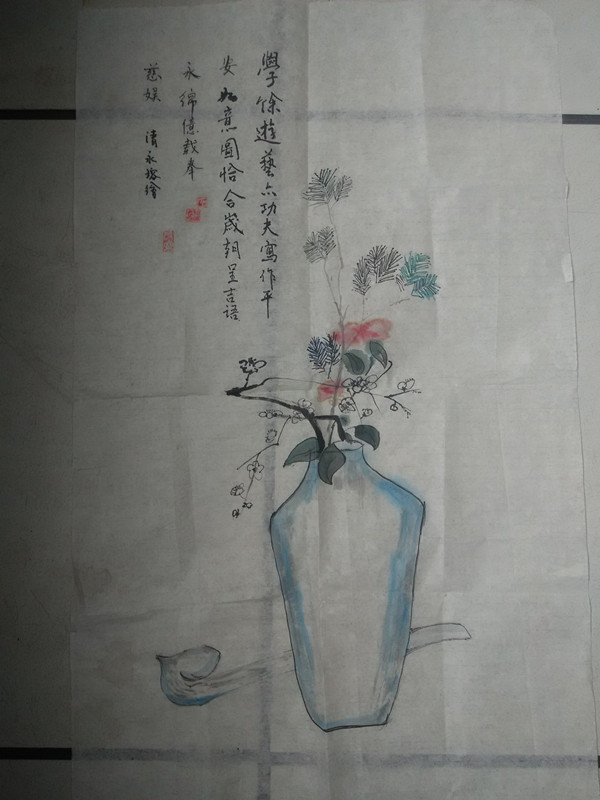 學餘遊藝亦功夫寫作平
安如意圖恰合歲朝呈吉語
永綿億載奉
慈娛 清永瑢繪